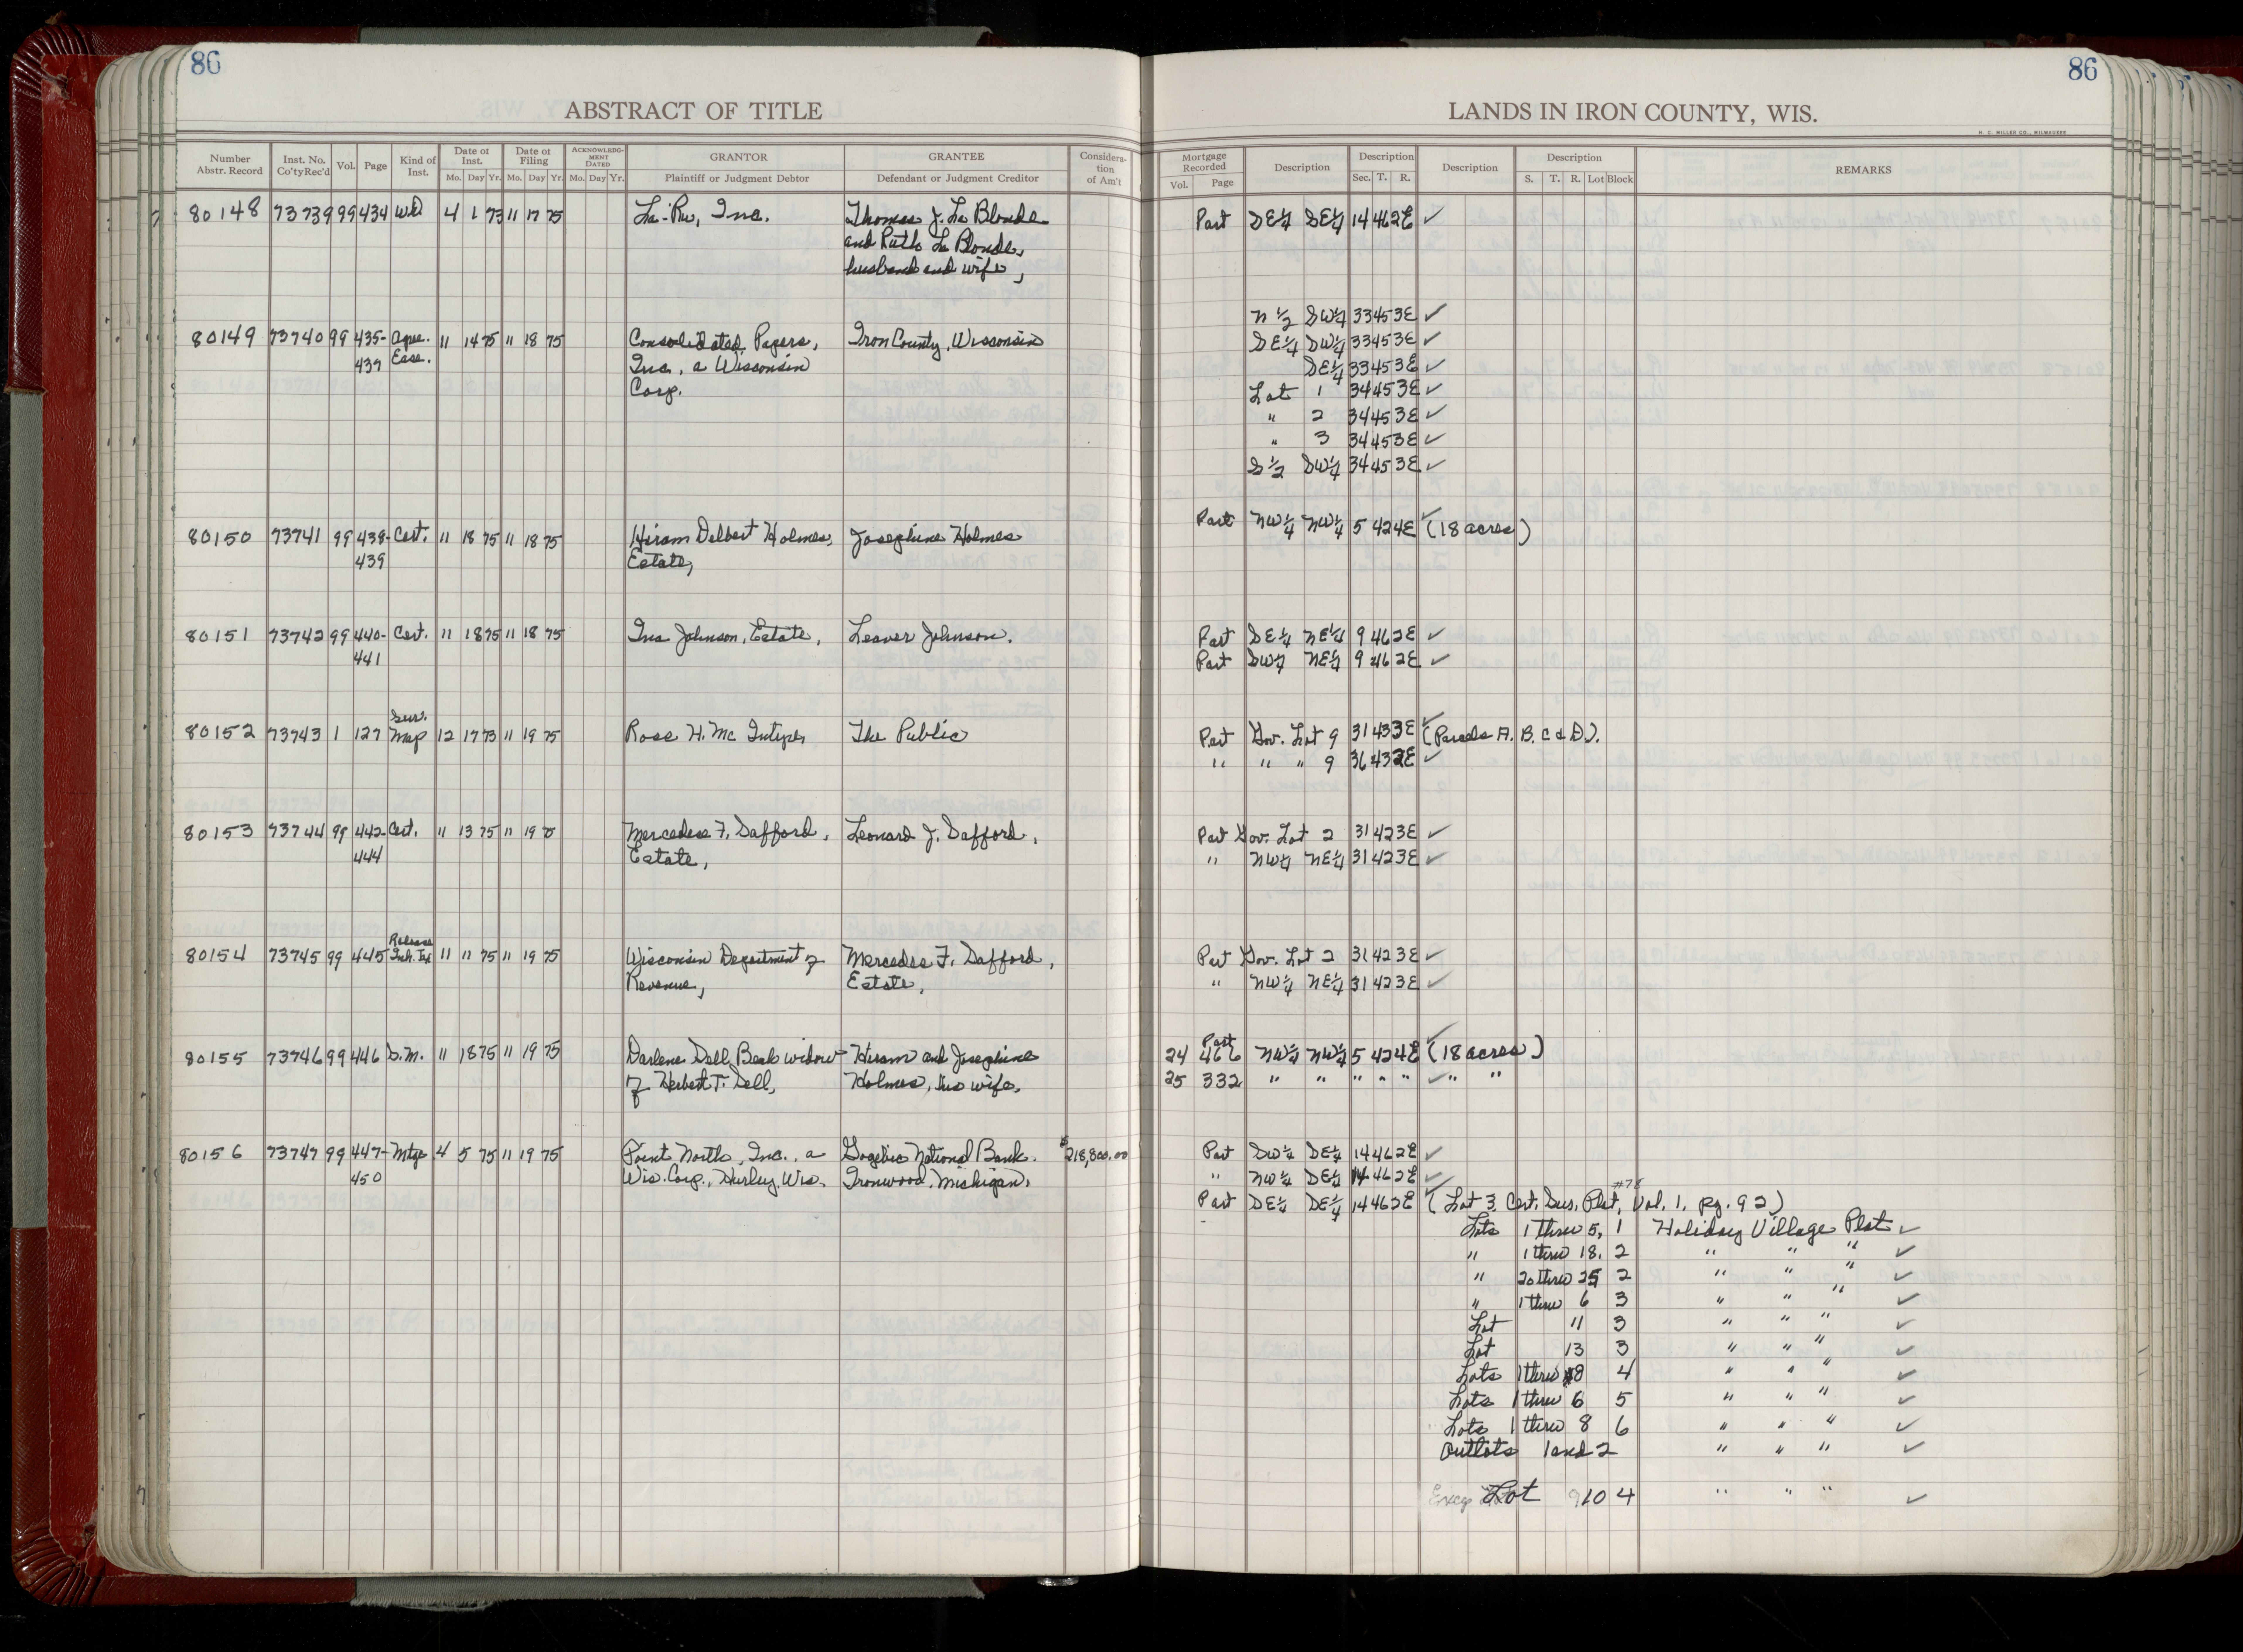 86
86
ABSTRACT OF TITLE
LANDS IN IRON COUNTY, WIS.
H. C. MILLER CO., MILWAUKEE
Number Abstr. Record Inst. No. Co'ty Rec'd Vol. Page Kind of Inst. Date of Inst. Mo. Day Yr. Date of Filing Mo. Day Yr. ACKNOWLEDGMENT DATED Mo. Day Yr. GRANTOR Plaintiff or Judgment Debtor GRANTEE Defendant or Judgment Creditor Consideration of Am't
Mortgage Recorded Vol. Page Description Description Sec. T. R. Description Description S. T. R. Lot Block REMARKS
80148 73739 99 434 WD 4 1 73 11 17 75 La-Ru, Inc. Thomas J. La Blonde Part SE¼ SE¼ 14 46 2E ✓
and Ruth La Blonde,
husband and wife,
N½ SW¼ 33 45 3E ✓
80149 73740 99 435- Agree. 11 14 75 11 18 75 Consolidated Papers, Iron County, Wisconsin SE¼ SW¼ 33 45 3E ✓
437 Ease. Inc., a Wisconsin SE¼ 33 45 3E ✓
Corp. Lot 1 34 45 3E ✓
" 2 34 45 3E ✓
" 3 34 45 3E ✓
S½ SW¼ 34 45 3E ✓
80150 73741 99 438- Cert. 11 18 75 11 18 75 Hiram Delbert Holmes, Josephine Holmes Part NW¼ NW¼ 5 42 4E ✓ (18 acres)
439 Estate,
80151 73742 99 440- Cert. 11 18 75 11 18 75 Ina Johnson, Estate, Leaver Johnson. Part SE¼ NE¼ 9 46 2E ✓
441 Part SW¼ NE¼ 9 46 2E ✓
Sur.
80152 73743 1 127 Map 12 17 73 11 19 75 Ross H. Mc Intyre, The Public Part Gov. Lot 9 31 43 3E ✓ (Parcels A. B. C & D).
" " " 9 36 43 2E ✓
80153 73744 99 442- Cert. 11 13 75 11 19 75 Mercedes F. Safford, Leonard J. Safford, Part Gov. Lot 2 31 42 3E ✓
444 Estate, " NW¼ NE¼ 31 42 3E ✓
Release
80154 73745 99 445 Inh. Tax 11 11 75 11 19 75 Wisconsin Department of Mercedes F. Safford, Part Gov. Lot 2 31 42 3E ✓
Revenue, Estate, " NW¼ NE¼ 31 42 3E ✓
Part
80155 73746 99 446 S.M. 11 18 75 11 19 75 Darlene Dell Beals widow Hiram and Josephine 24 466 NW¼ NW¼ 5 42 4E ✓ (18 acres)
of Herbert T. Dell, Holmes, his wife. 25 332 " " " " " ✓ " "
80156 73747 99 447- Mtge 4 5 75 11 19 75 Point North, Inc., a Gogebic National Bank. $218,800.00 Part SW¼ SE¼ 14 46 2E ✓
450 Wis. Corp., Hurley, Wis. Ironwood, Michigan. " NW¼ SE¼ 14 46 2E ✓
Part SE¼ SE¼ 14 46 2E ✓ (Lot 3, Cert. Sur. Plat, Vol. 1, Pg. 92)
Lots 1 thru 5, 1 Holiday Village Plat ✓
" 1 thru 18, 2 " " " ✓
" 20 thru 25 2 " " " ✓
" 1 thru 6 3 " " " ✓
Lot 11 3 " " " ✓
Lot 13 3 " " " ✓
Lots 1 thru 8 4 " " " ✓
Lots 1 thru 6 5 " " " ✓
Lots 1 thru 8 6 " " " ✓
Outlots 1 and 2 " " " ✓
Lot 10 4 " " " ✓